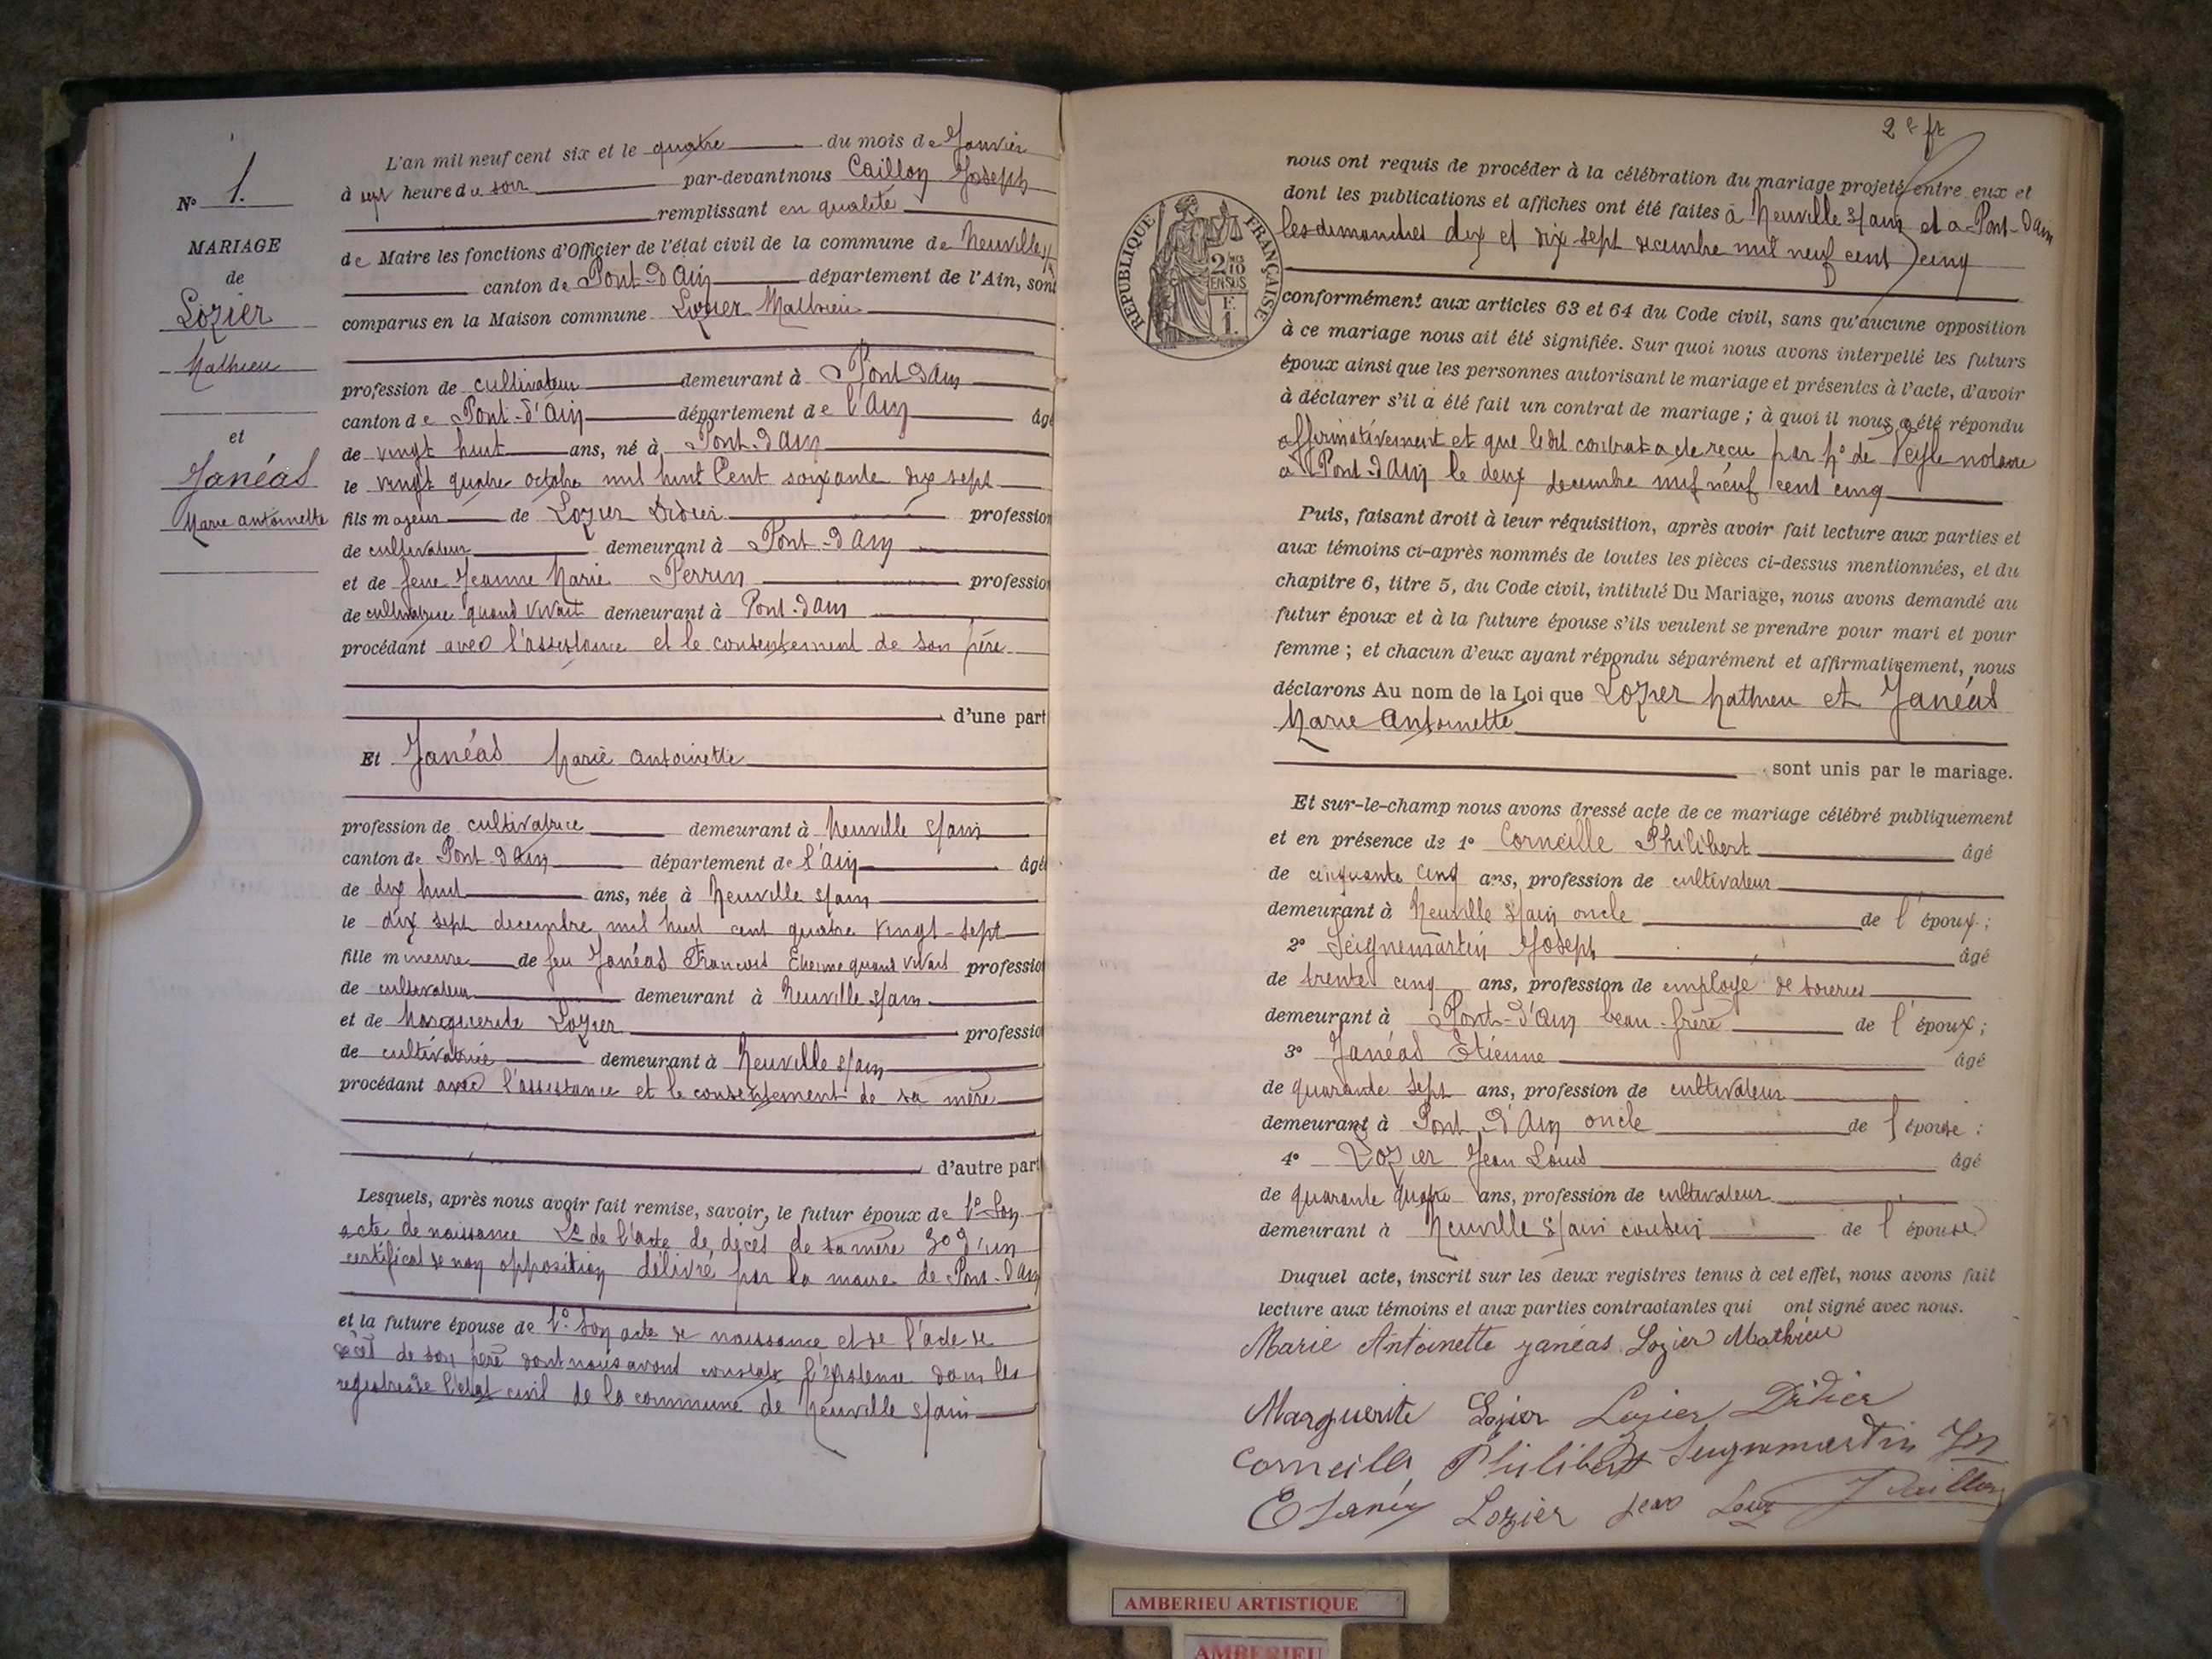 N° 1.
MARIAGE
de
Lozier
Mathieu
et
Janéas
Marie antoinette
L'an mil neuf cent six et le quatre du mois de Janvier
à sept heure du soir par-devant nous Caillon Joseph
remplissant en qualité
de Maire les fonctions d'Officier de l'état civil de la commune de Neuville s/
canton de Pont-d'Ain département de l'Ain, sont
comparus en la Maison commune Lozier Mathieu
profession de cultivateur demeurant à Pont-d'Ain
canton de Pont-d'Ain département de l'Ain âgé
de vingt huit ans, né à Pont-d'Ain
le vingt quatre octobre mil huit Cent soixante dix sept
fils majeur de Lozier Didier profession
de cultivateur demeurant à Pont-d'Ain
et de feue Jeanne Marie Perrin profession
de cultivatrice quand vivait demeurant à Pont-d'Ain
procédant avec l'assistance et le consentement de son père
d'une part
Et Janéas Marie antoinette
profession de cultivatrice demeurant à Neuville s/ain
canton de Pont-d'Ain département de l'Ain âgée
de dix huit ans, née à Neuville s/ain
le dix sept decembre mil huit cent quatre vingt-sept
fille mineure de feu Janéas Francois Etienne quand vivait profession
de cultivateur demeurant à Neuville s/ain
et de Marguerite Lozier profession
de cultivatrice demeurant à Neuville s/ain
procédant avec l'assistance et le consentement de sa mère
d'autre part
Lesquels, après nous avoir fait remise, savoir, le futur époux de 1° Son
acte de naissance 2° de l'acte de décès de sa mère 3° d'un
certificat de non opposition délivré par la maire de Pont-d'Ain
et la future épouse de 1°. Son acte de naissance et de l'acte de
décès de son père dont nous avons constaté l'existence dans les
registres de l'état civil de la commune de Neuville s/ain
2e ft
RÉPUBLIQUE FRANÇAISE
2/10 EN SUS
F 1.
nous ont requis de procéder à la célébration du mariage projeté entre eux et
dont les publications et affiches ont été faites à Neuville s/ain et a Pont-d'Ain
les dimanches dix et dix sept decembre mil neuf cent cinq
conformément aux articles 63 et 64 du Code civil, sans qu'aucune opposition
à ce mariage nous ait été signifiée. Sur quoi nous avons interpellé les futurs
époux ainsi que les personnes autorisant le mariage et présentes à l'acte, d'avoir
à déclarer s'il a été fait un contrat de mariage ; à quoi il nous a été répondu
affirmativement et que ledit contrat a ete recu par Me de Veyle notaire
a Pont-d'Ain le deux decembre mil neuf cent cinq
Puis, faisant droit à leur réquisition, après avoir fait lecture aux parties et
aux témoins ci-après nommés de toutes les pièces ci-dessus mentionnées, et du
chapitre 6, titre 5, du Code civil, intitulé Du Mariage, nous avons demandé au
futur époux et à la future épouse s'ils veulent se prendre pour mari et pour
femme ; et chacun d'eux ayant répondu séparément et affirmativement, nous
déclarons Au nom de la Loi que Lozier Mathieu et Janéas
Marie Antoinette
sont unis par le mariage.
Et sur-le-champ nous avons dressé acte de ce mariage célébré publiquement
et en présence de 1° Corneille Philibert âgé
de cinquante cinq ans, profession de cultivateur
demeurant à Neuville s/ain oncle de l'époux ;
2° Seignemartin Joseph âgé
de trente cinq ans, profession de employé de soieries
demeurant à Pont-d'Ain beau-frère de l'époux ;
3° Janéas Etienne âgé
de quarante sept ans, profession de cultivateur
demeurant à Pont d'Ain oncle de l'épouse ;
4° Lozier Jean Louis âgé
de quarante quatre ans, profession de cultivateur
demeurant à Neuville s/ain cousin de l'épouse
Duquel acte, inscrit sur les deux registres tenus à cet effet, nous avons fait
lecture aux témoins et aux parties contractantes qui ont signé avec nous.
Marie Antoinette janéas Lozier Mathieu
Marguerite Lozier Lozier Didier
Corneille Philibert Seignemartin Jh
E Janéas Lozier jean Louis J Caillon
AMBERIEU ARTISTIQUE
AMBERIEU